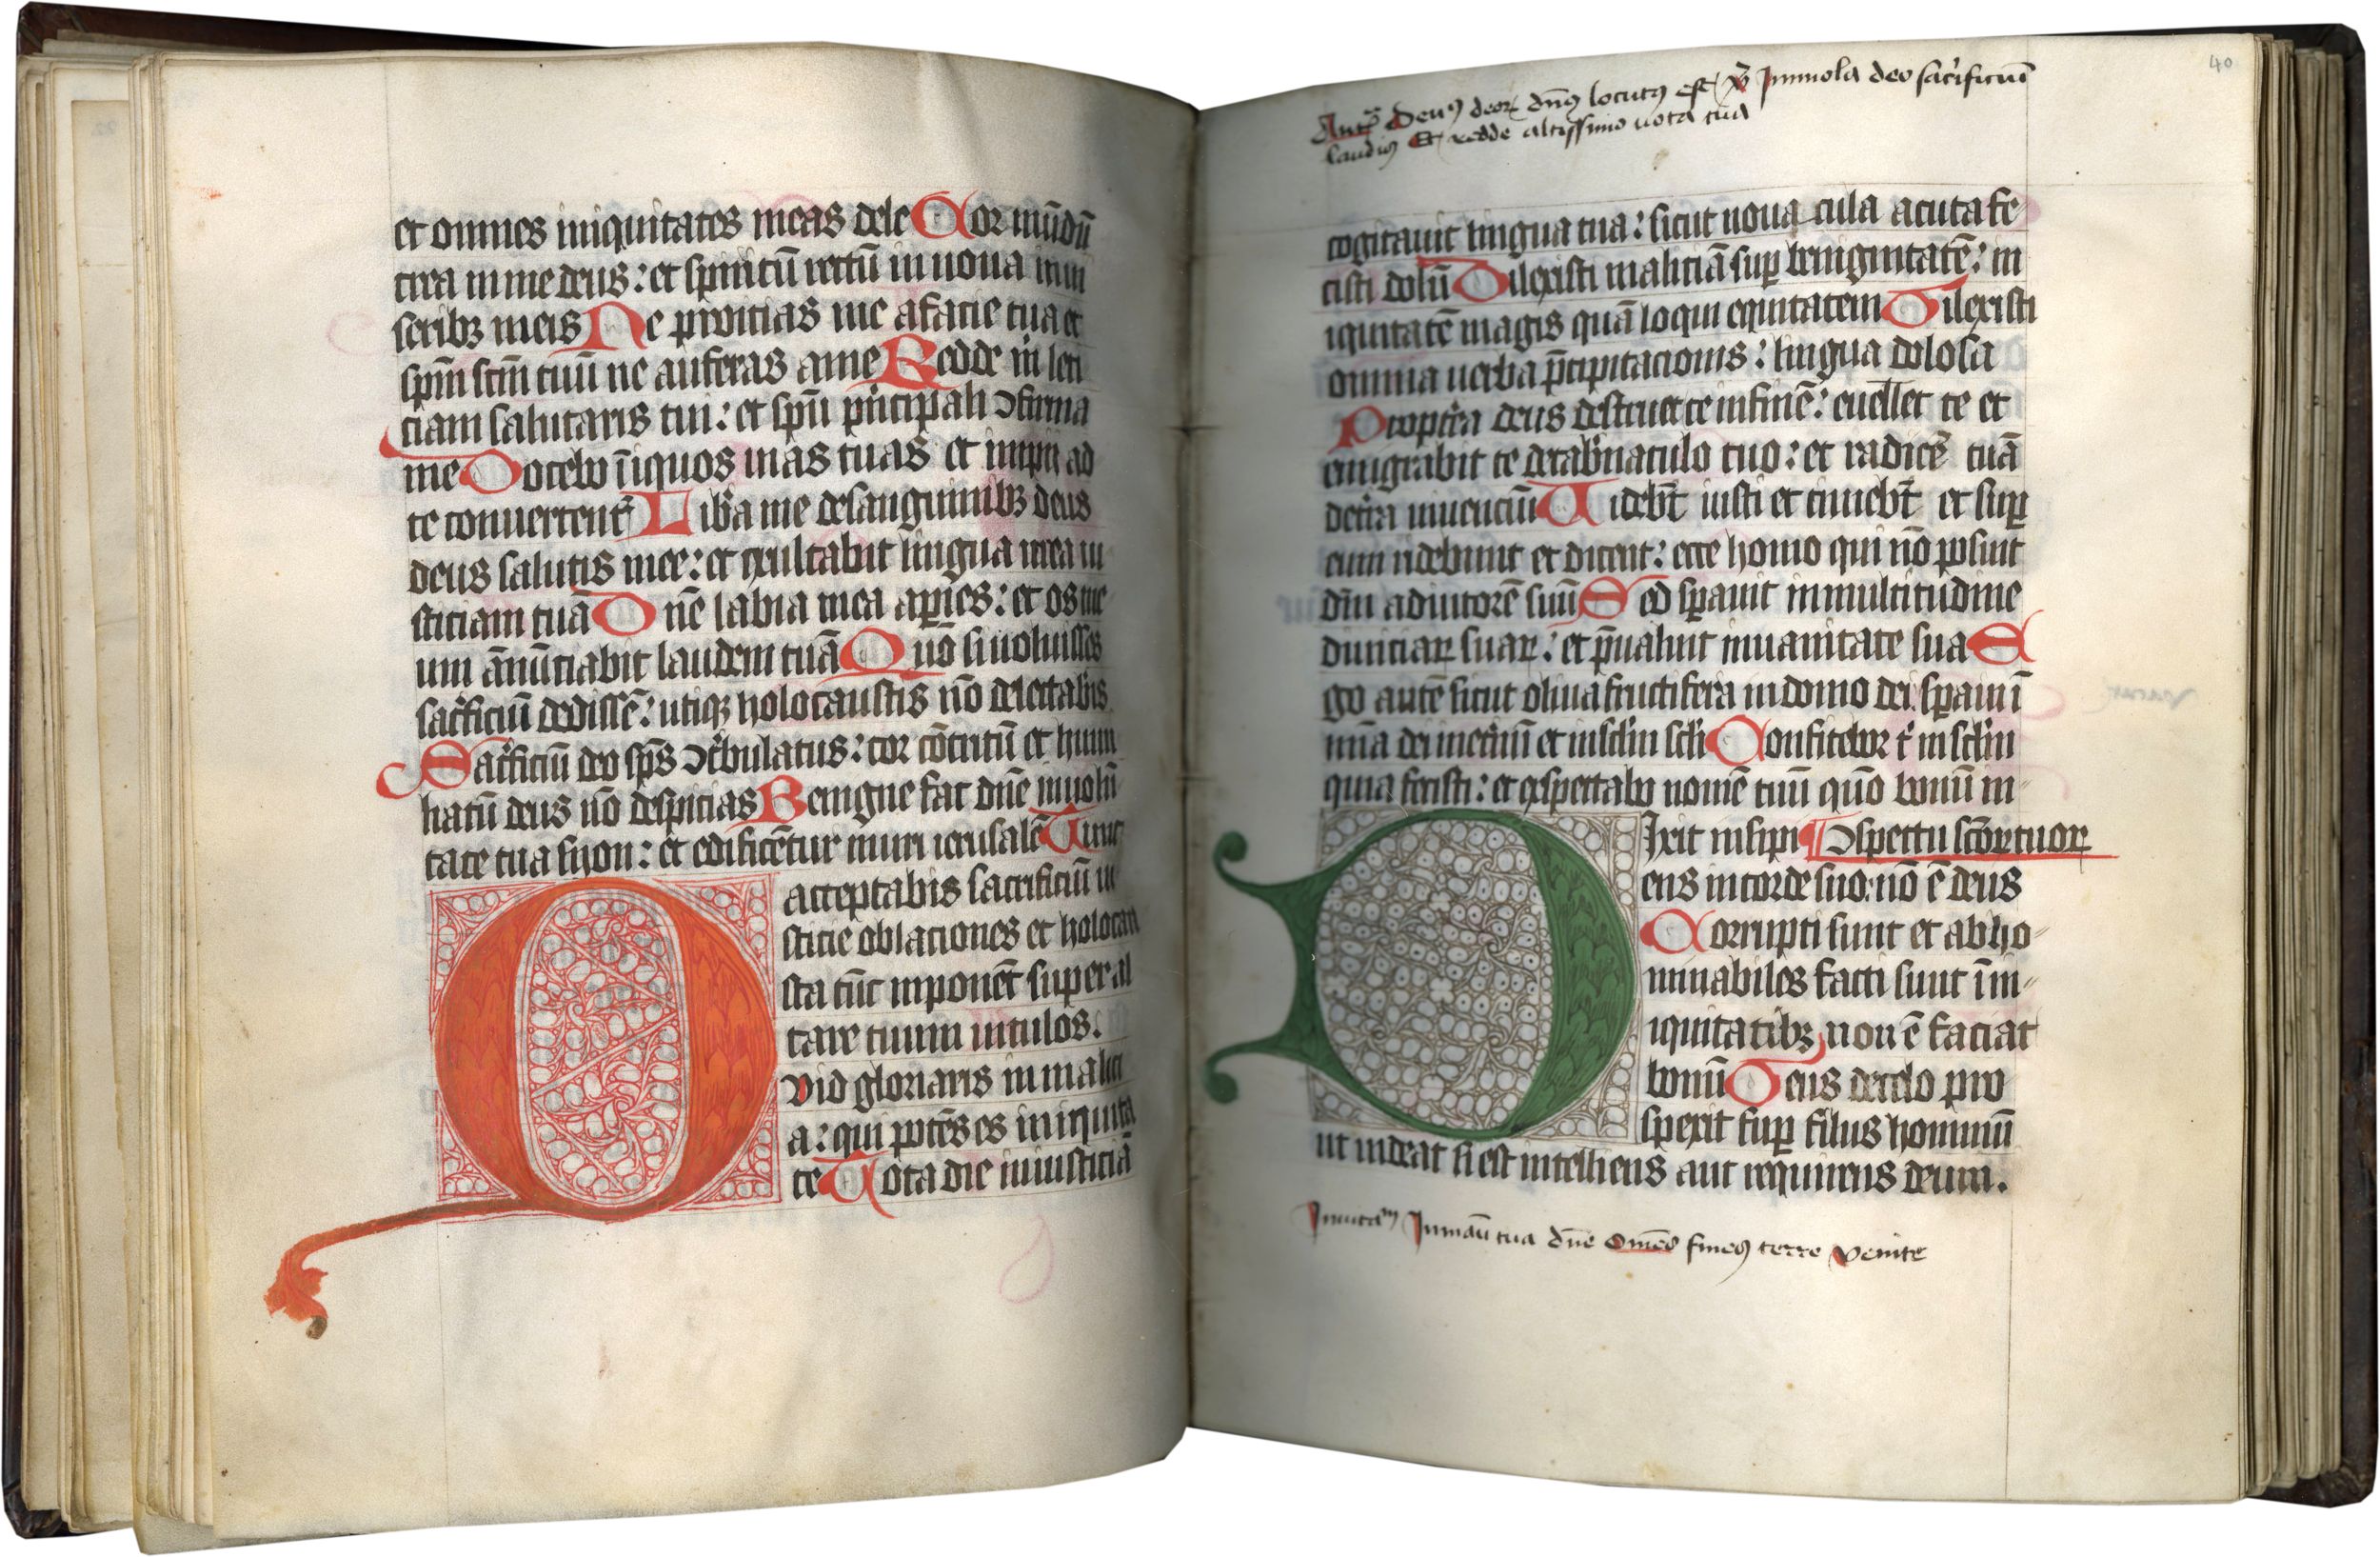 et omnes iniquitates meas dele Cor mūdū
crea in me deus : et spiritū rectū in noua in uı
sceribꝫ meis Ne proicias me a facie tua et
spm̄ scm̄ tuū ne auferas a me Redde in leti
ciam salutaris tui : et spū pͥncipali ↄfirma
me Docebo īiquos uias tuas et impii ad
te conuertent᷑ Libͤa me de sanguinibꝫ deus
deus salutis mee : et exultabit lingua mea iu
sticiam tuā Dnē labia mea aꝑies : et os me
um ānūciabit laudem tuā Quō si uoluisses
sacͥficiū dedissē : utiqꝫ holocaustis nō delectabͥis
Sacͥficiū deo sp̄s ↄtͥbulatus : cor cōtritū et humi
liatū deus nō despicias Benigne fac dn̄e in uolū
tate tua syon : et edificētur muri ierusalē Tunc
acceptabis sacrificiū iu
sticie oblaciones et holocau
sta tūc inponēt super al
tare tuum uitulos.
Quid gloriaris in malici
a : qui potēs es in iniquita
te Tota die iniusticiā
40
Antᷓ Deuꝰ deoꝝ dn̄s locutꝰ est ℣ Immola deo sacͥficiuī
laudis Et redde altissimo uota tua
cogitauit lingua tua : sicut noua cula acuta fe
cisti dolū Dilexisti maliciā suꝑ benignitatē : in
iquitatē magis quā loqui equitatem Dilexisti
omnia uerba p̄cipitacionis : lingua dolosa
Proptͤea deus destruet te in finē : euellet te et
emigrabit te de tabͤnaculo tuo : et radicē tuā
de tͤra uiuenciū Uidebt̄ iusti et timebt̄ et suꝑ
eum ridebunt et dicent : ecce homo qui nō posuit
dm̄ adiutorē suū Sed sꝑauit in multitudine
diuiciaꝝ suaꝝ : et p̄ualuit in uanitate sua E
go autē sicut oliua fructifera in domo dei sꝑaui ī
mīa dei in etͤnū et in sclm̄ scli Confitebor tͥ in sclm̄
quia fecisti : et exspectabo nomē tuū quō bonū in
Dixit insipi ¶ ↄspectu scōꝝ tuoꝝ
ens in corde suo : nō ē deus
Corrupti sunt et abho
minabiles facti sunt ī in
iquitatibꝫ non ē faciat
bonū Deus de celo pro
spexit suꝑ filius hominū
ut uideat si est intelliens aut requirens deum.
Inuitaᵐ In manū tua dn̄e Omēs fines terre Venite